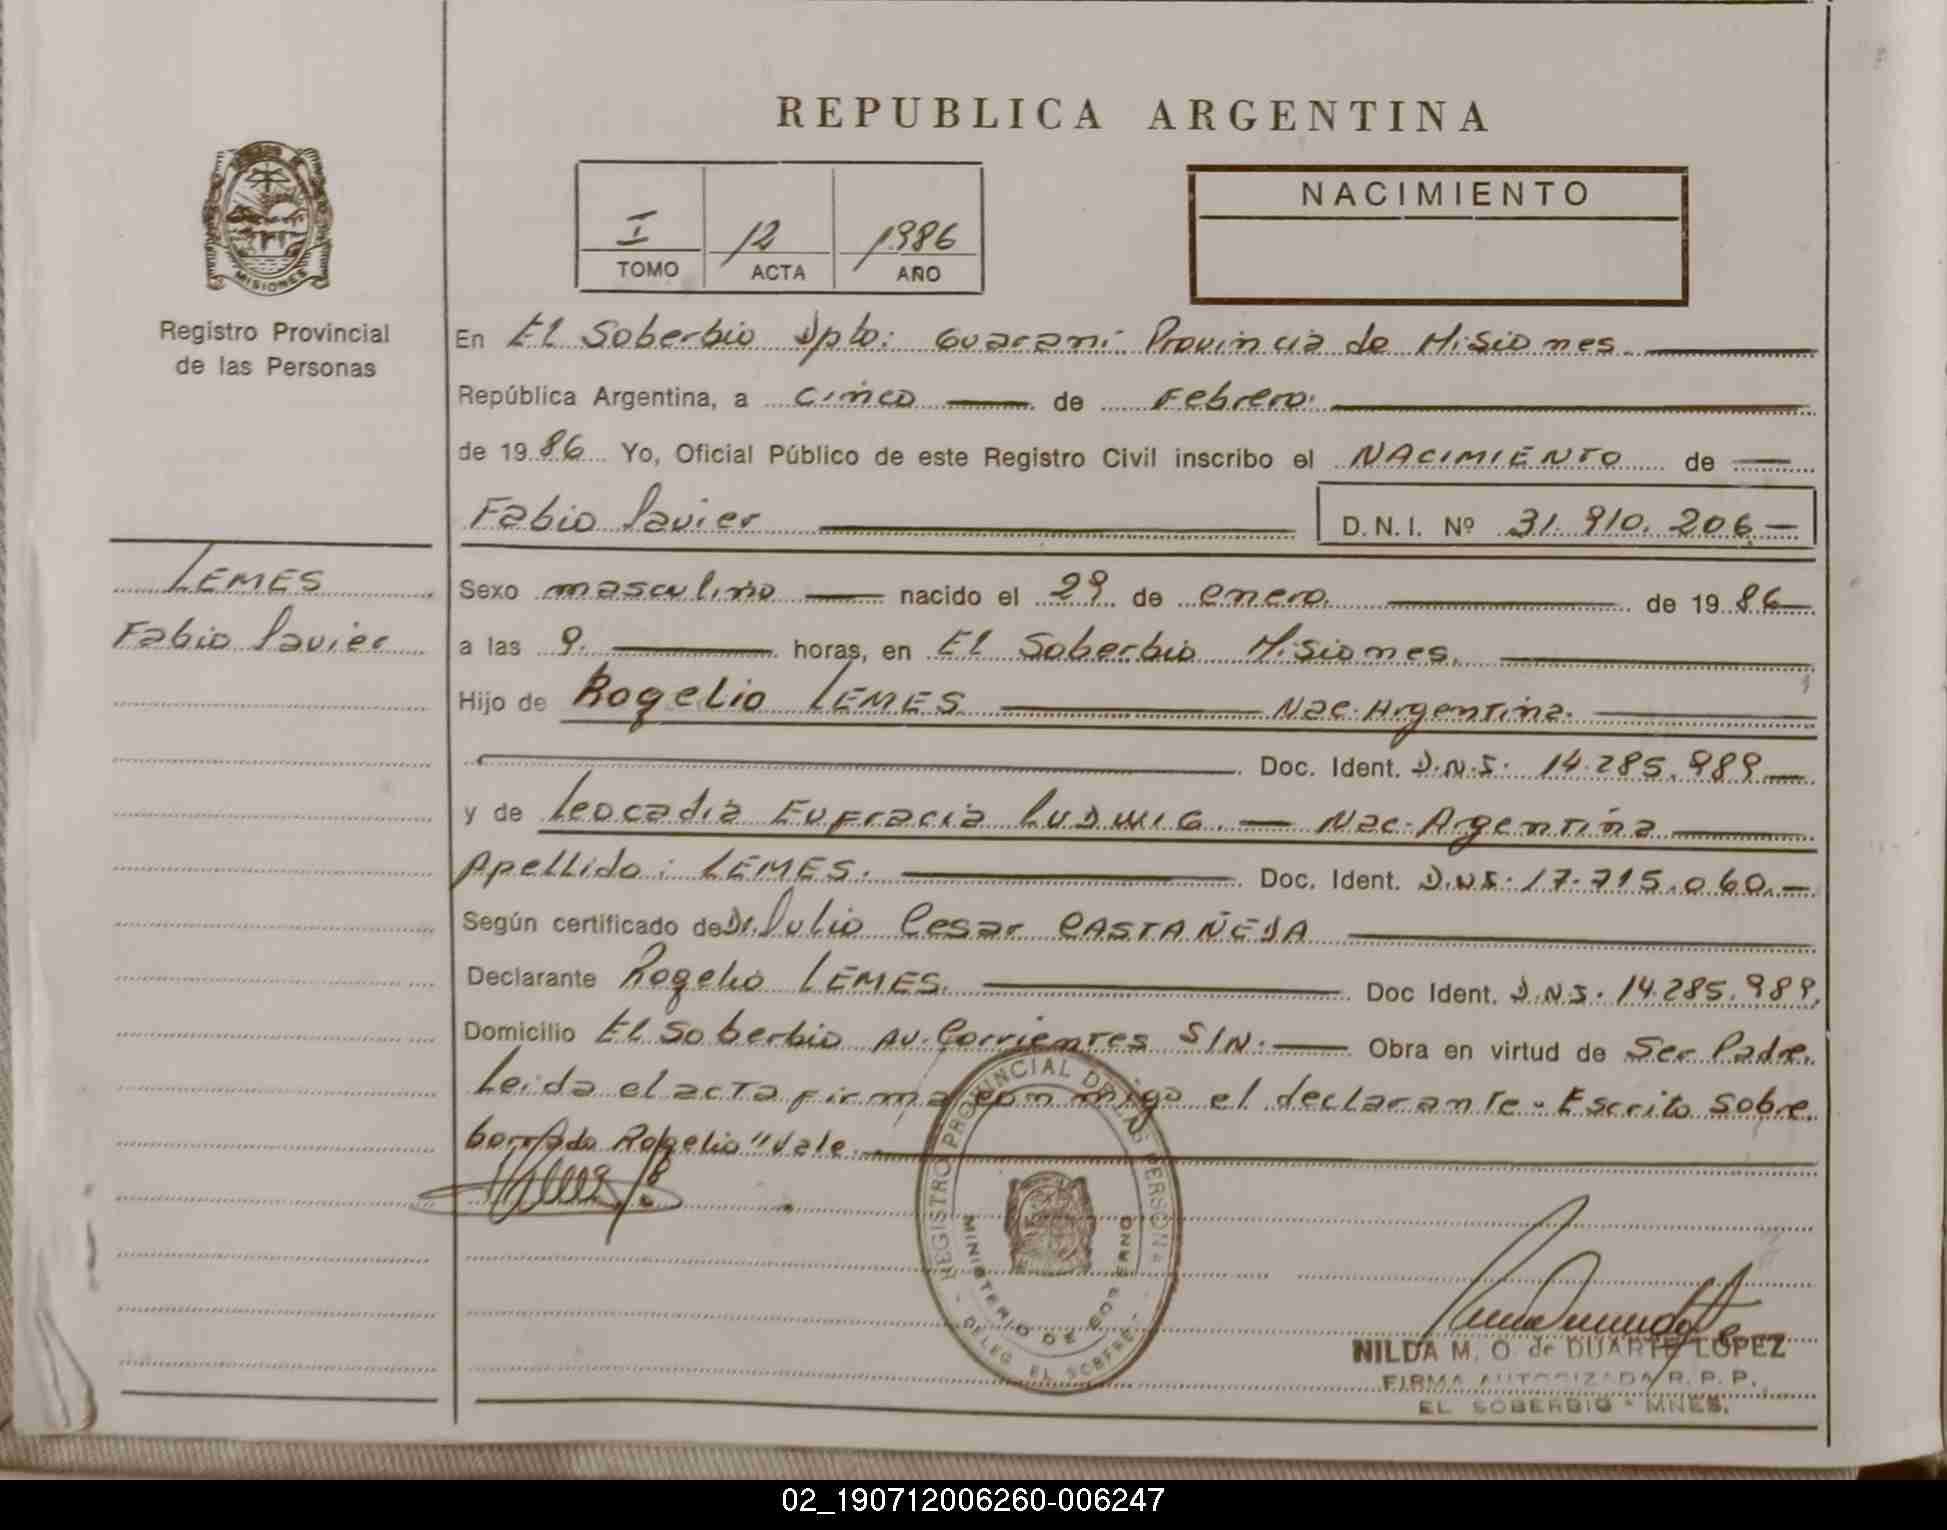 REPUBLICA ARGENTINA
MISIONES
Registro Provincial
de las Personas
I 12 1986
TOMO ACTA AÑO
NACIMIENTO
En El Soberbio Dpto: Guaraní Provincia de Misiones.
República Argentina, a cinco de Febrero.
de 1986 Yo, Oficial Público de este Registro Civil inscribo el NACIMIENTO de
Fabio Javier D.N.I. Nº 31.910.206.-
LEMES
Fabio Javier
Sexo masculino nacido el 29 de enero. de 1986
a las 9. horas, en El Soberbio Misiones.
Hijo de Rogelio LEMES Nac. Argentina.
Doc. Ident. D.N.I. 14.285.989
y de Leocadia Eufracia LUDWIG. Nac. Argentina
Apellido: LEMES. Doc. Ident. D.N.I. 17.715.060.-
Según certificado de Dr. Julio Cesar CASTAÑEDA
Declarante Rogelio LEMES. Doc Ident. D.N.I. 14.285.989.
Domicilio El Soberbio Av. Corrientes S/N. Obra en virtud de Ser Padre.
Leida el acta firma conmigo el declarante - Escrito sobre
borrado Rogelio" Vale.
REGISTRO PROVINCIAL DE LAS PERSONAS
MINISTERIO DE GOBIERNO
DELEG. EL SOBERBIO
NILDA M. O. de DUARTE LOPEZ
FIRMA AUTORIZADA R. P. P.
EL SOBERBIO - MNES.
02_190712006260-006247